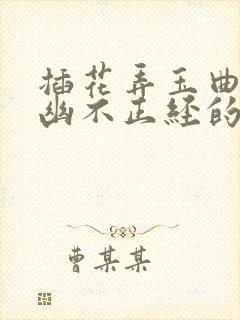 插花弄玉曲
幽不正经的
曹某某